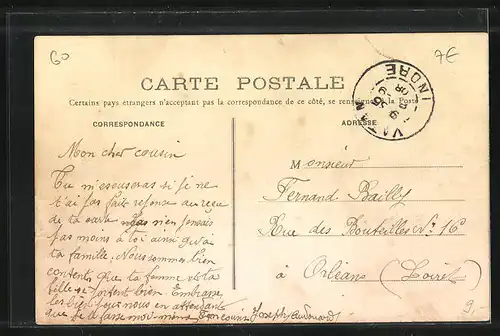 60
7€
CARTE POSTALE
Certains pays étrangers n'acceptant pas la correspondance de ce côté, se renseigner à la Poste
CORRESPONDANCE
ADRESSE
VATAN
INDRE
Mon cher cousin
Tu m'escuseras si je ne
t'ai pas fait réponse au reçu
de ta carte mais n'en pensais
pas moins à toi ainsi qu'à
ta famille. Nous sommes bien
contents que ta femme et la
fille se portent bien Embrasse
les bien pour nous en attendant
que je le fasse moi même Ton cousin Joseph
Monsieur
Fernand Bailly
Rue des Bouteilles No 16
à Orléans (Loiret)